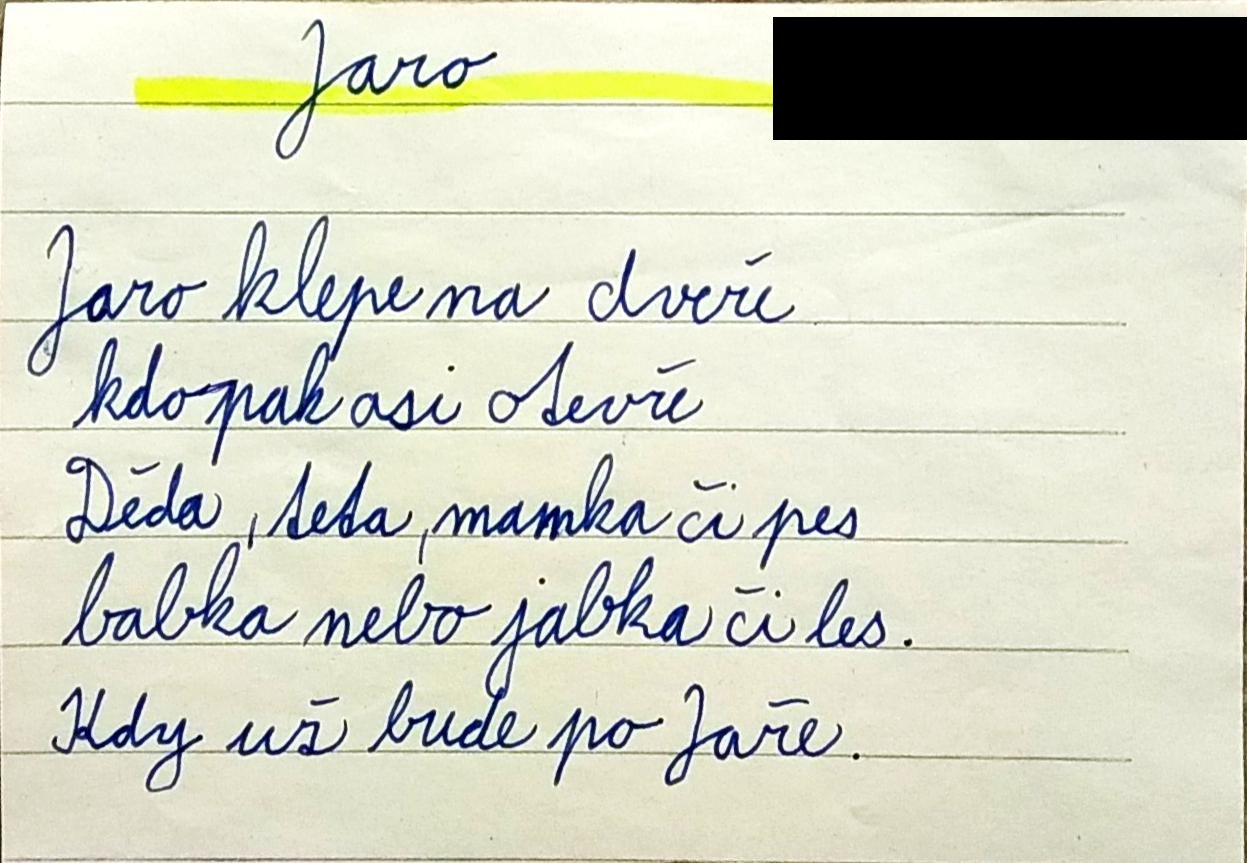 Jaro
Jaro klepe na dveře
kdopak asi otevře
Děda, teta, mamka či pes
babka nebo jabka či les.
Kdy už bude po Jaře.